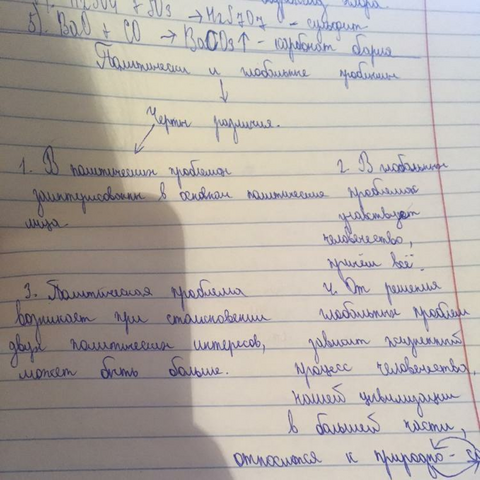 H2SO4 + SO3 → H2S2O7 -
5) BaO + CO → BaCO3↑ - карбонат бария
Политические и глобальные проблемы
Черты различия.
1. В политических проблемах
заинтересованны в основном политические
лица.
2. В глобальных
проблемах
учавствует
человечество,
причём всё.
3. Политическая проблема
возникает при столкновении
двух политических интересов,
может быть больше.
4. От решения
глобальных проблем
зависит жизненный
процесс человечества,
нашей цивилизации
в большей части,
относится к природно-